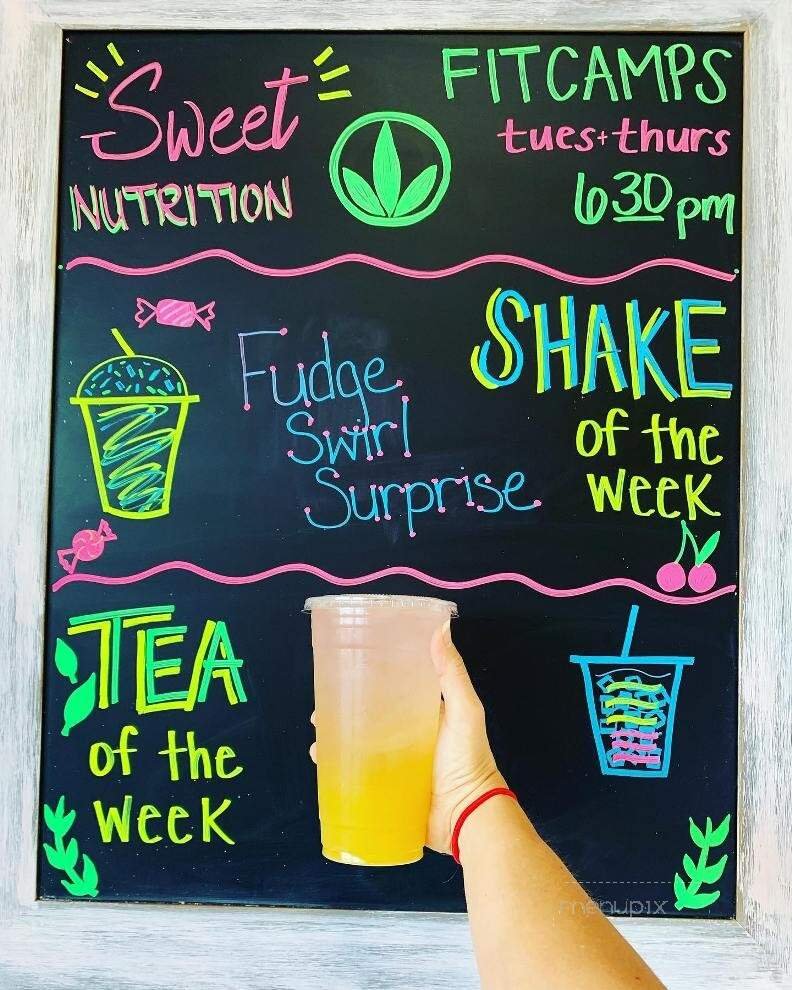 Sweet
NUTRITION
FITCAMPS
tues+thurs
630 pm
Fudge
Swirl
Surprise
SHAKE
of the
week
TEA
of the
week
menupix